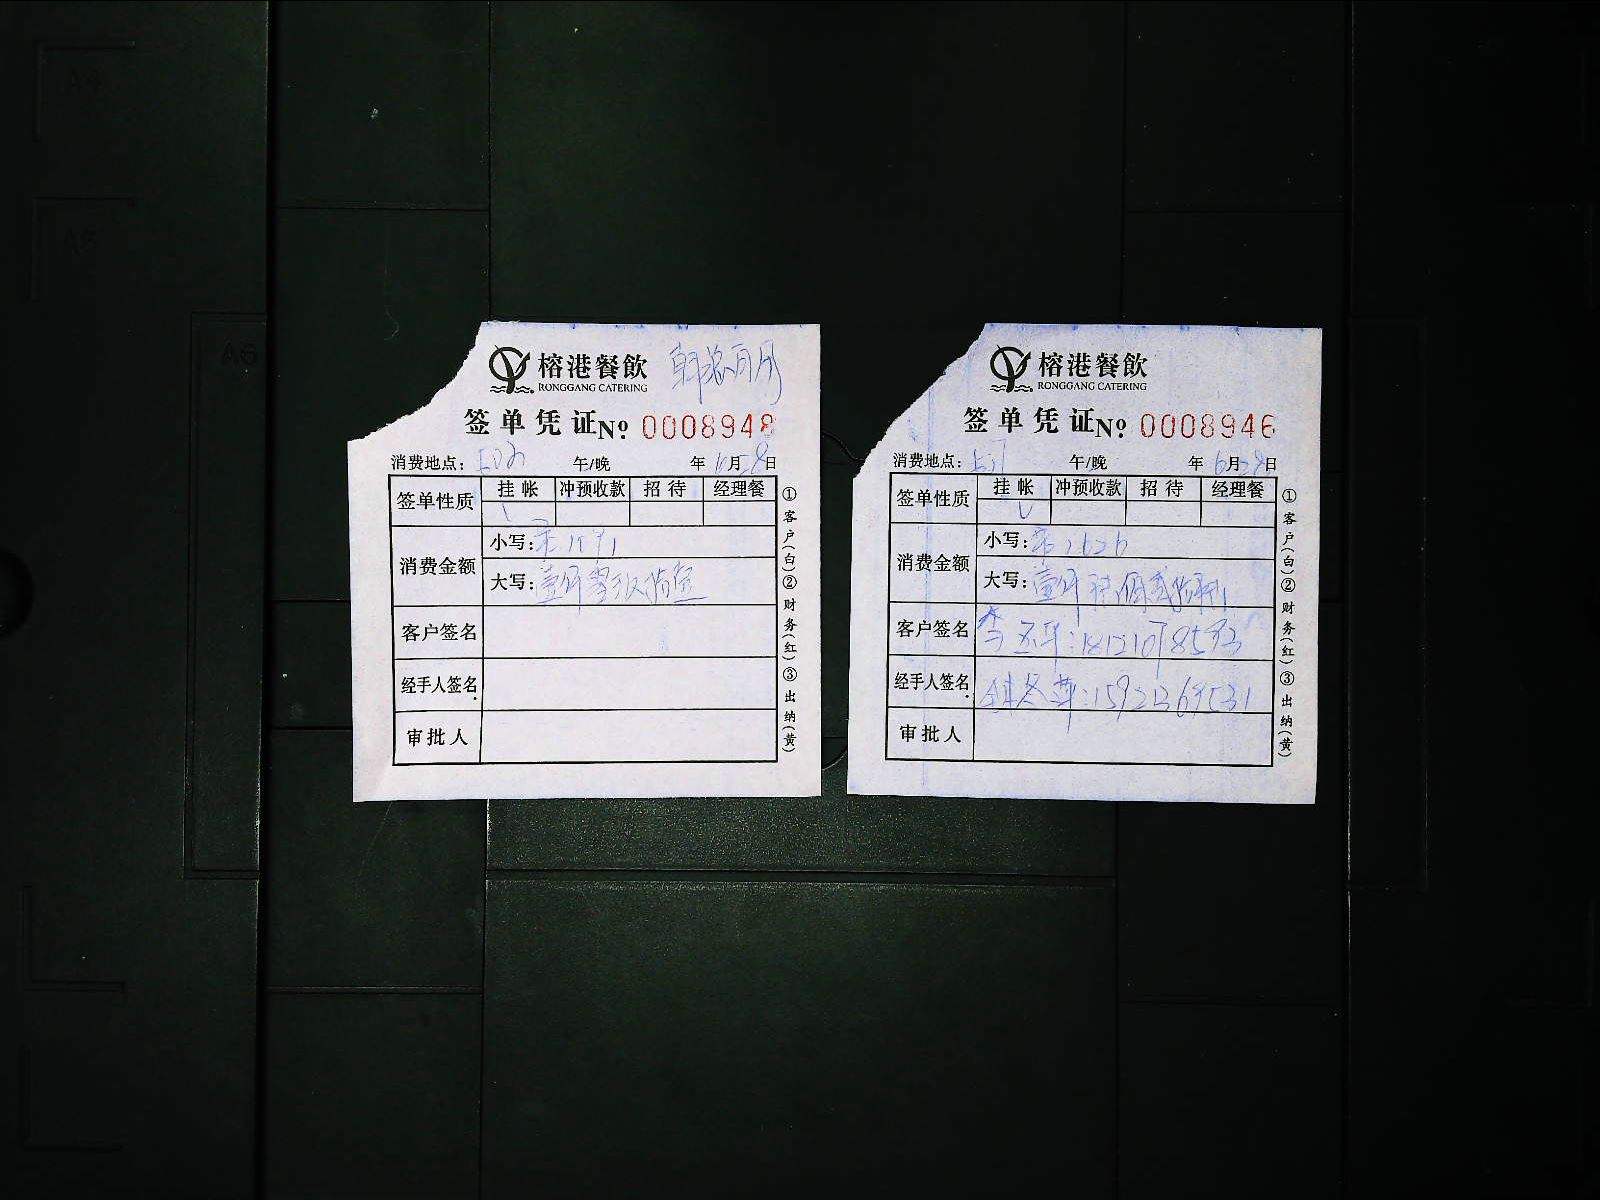 榕港餐飲
RONGGANG CATERING
签单凭证 No 0008948
消费地点: 午/晚 年 6月28日
签单性质 挂帐 冲预收款 招待 经理餐
消费金额 小写:
大写: 壹仟
客户签名
经手人签名
审批人
①客户(白)②财务(红)③出纳(黄)
榕港餐飲
RONGGANG CATERING
签单凭证 No 0008946
消费地点: 午/晚 年 6月28日
签单性质 挂帐 冲预收款 招待 经理餐
消费金额 小写: 1626
大写: 壹仟
客户签名
经手人签名
审批人
①客户(白)②财务(红)③出纳(黄)